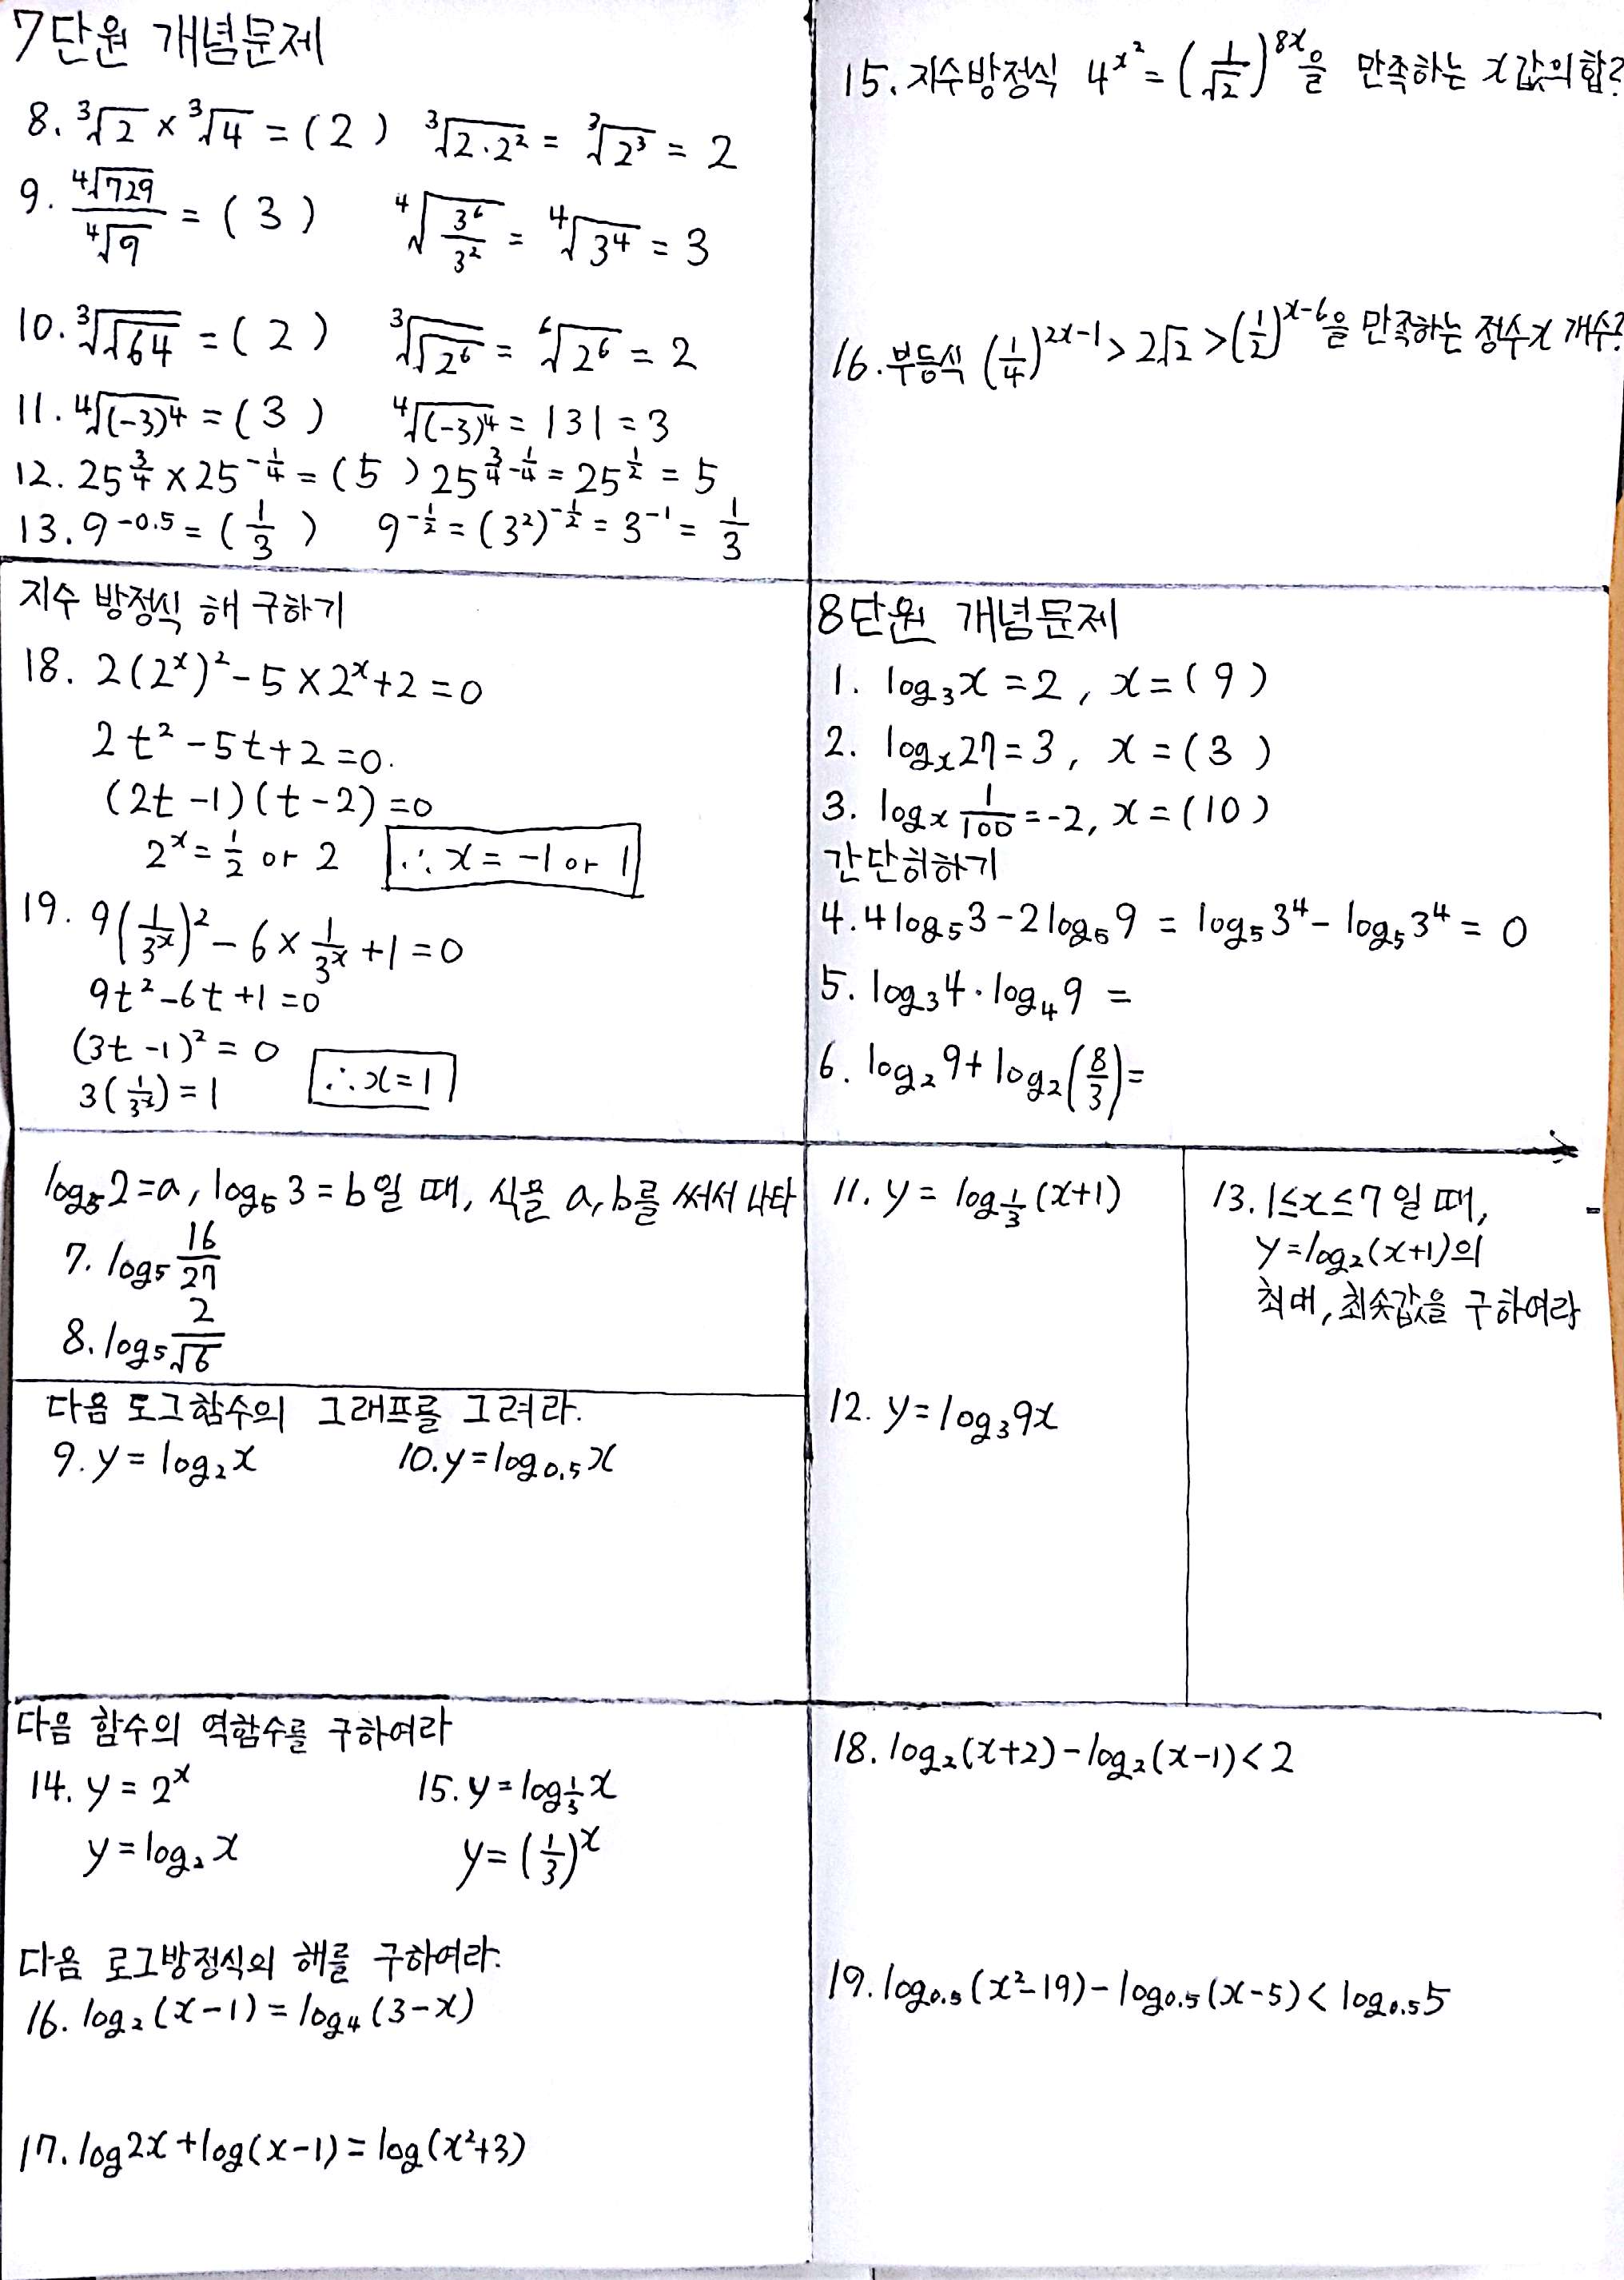 7단원 개념문제
8. ∛2 × ∛4 = ( 2 ) ∛(2·2²) = ∛(2³) = 2
9. ∜729 / ∜9 = ( 3 ) ∜(3⁶/3²) = ∜(3⁴) = 3
10. ∛√64 = ( 2 ) ∛√(2⁶) = ⁶√(2⁶) = 2
11. ∜(-3)⁴ = ( 3 ) ∜(-3)⁴ = |3| = 3
12. 25^(3/4) × 25^(-1/4) = ( 5 ) 25^(3/4-1/4) = 25^(1/2) = 5
13. 9^(-0.5) = ( 1/3 ) 9^(-1/2) = (3²)^(-1/2) = 3⁻¹ = 1/3
15. 지수방정식 4^(x²) = (1/√2)^(8x)을 만족하는 x값의합?
16. 부등식 (1/4)^(2x-1) > 2√2 > (1/2)^(x-6)을 만족하는 정수x 개수?
지수 방정식 해 구하기
18. 2(2^x)² - 5 × 2^x + 2 = 0
2t² - 5t + 2 = 0.
(2t - 1)(t - 2) = 0
2^x = 1/2 or 2 ∴ x = -1 or 1
19. 9(1/3^x)² - 6 × 1/3^x + 1 = 0
9t² - 6t + 1 = 0
(3t - 1)² = 0
3(1/3^x) = 1 ∴ x = 1
8단원 개념문제
1. log₃x = 2, x = ( 9 )
2. logₓ27 = 3, x = ( 3 )
3. logₓ 1/100 = -2, x = ( 10 )
간단히하기
4. 4log₅3 - 2log₅9 = log₅3⁴ - log₅3⁴ = 0
5. log₃4 · log₄9 =
6. log₂9 + log₂(8/3) =
log₅2 = a, log₅3 = b일 때, 식을 a, b를 써서 나타
7. log₅ 16/27
8. log₅ 2/√6
다음 로그함수의 그래프를 그려라.
9. y = log₂x 10. y = log₀.₅x
11. y = log_(1/3)(x+1)
12. y = log₃9x
13. 1≤x≤7일 때,
y = log₂(x+1)의
최대, 최솟값을 구하여라
다음 함수의 역함수를 구하여라
14. y = 2^x 15. y = log_(1/3)x
y = log₂x y = (1/3)^x
다음 로그방정식의 해를 구하여라.
16. log₂(x-1) = log₄(3-x)
17. log2x + log(x-1) = log(x²+3)
18. log₂(x+2) - log₂(x-1) < 2
19. log₀.₅(x²-19) - log₀.₅(x-5) < log₀.₅5